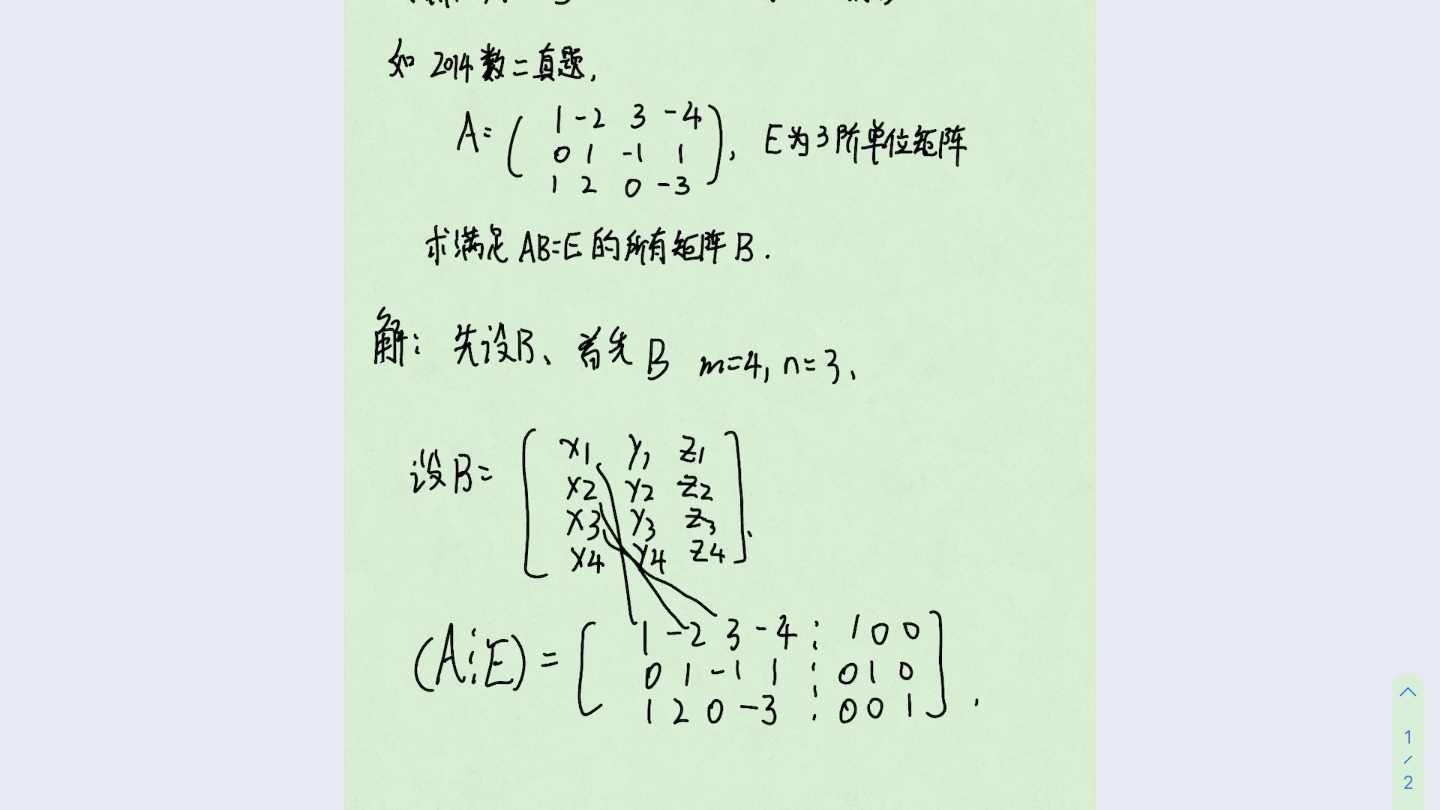 如 2014数二真题,
A= ( 1 -2 3 -4
0 1 -1 1
1 2 0 -3 ), E为3阶单位矩阵
求满足 AB=E 的所有矩阵 B.
解: 先设B、首先 B m=4, n=3、
设B= [ x1 y1 z1
x2 y2 z2
x3 y3 z3
x4 y4 z4 ].
(A⋮E) = [ 1 -2 3 -4 ⋮ 1 0 0
0 1 -1 1 ⋮ 0 1 0
1 2 0 -3 ⋮ 0 0 1 ].
1
/
2